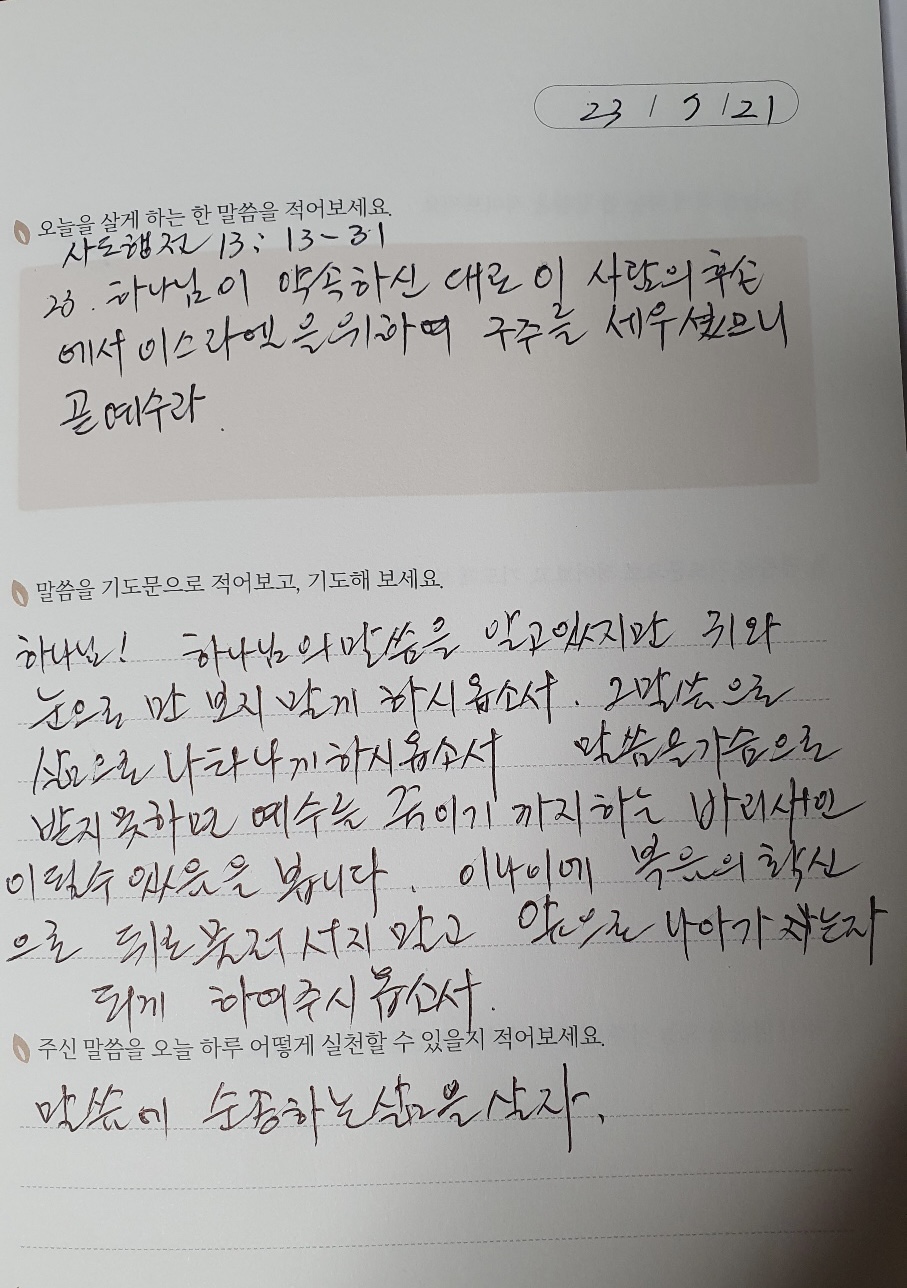 23 / 7 / 21
오늘을 살게 하는 한 말씀을 적어보세요.
사도행전 13: 13-31
23. 하나님이 약속하신 대로 이 사람의 후손
에서 이스라엘을 위하여 구주를 세우셨으니
곧 예수라.
말씀을 기도문으로 적어보고, 기도해 보세요.
하나님! 하나님의 말씀을 알고있지만 귀와
눈으로 만 보지 말게 하시옵소서. 그말씀으로
삶으로 나타나게하시옵소서 말씀을가슴으로
받지못하면 예수를 죽이기 까지하는 바리새인
이될수 있음을 봅니다. 이나이에 복음의 확신
으로 뒤로물러 서지 말고 앞으로 나아가 는자
되게 하여주시옵소서.
주신 말씀을 오늘 하루 어떻게 실천할 수 있을지 적어보세요.
말씀에 순종하는삶을살자.